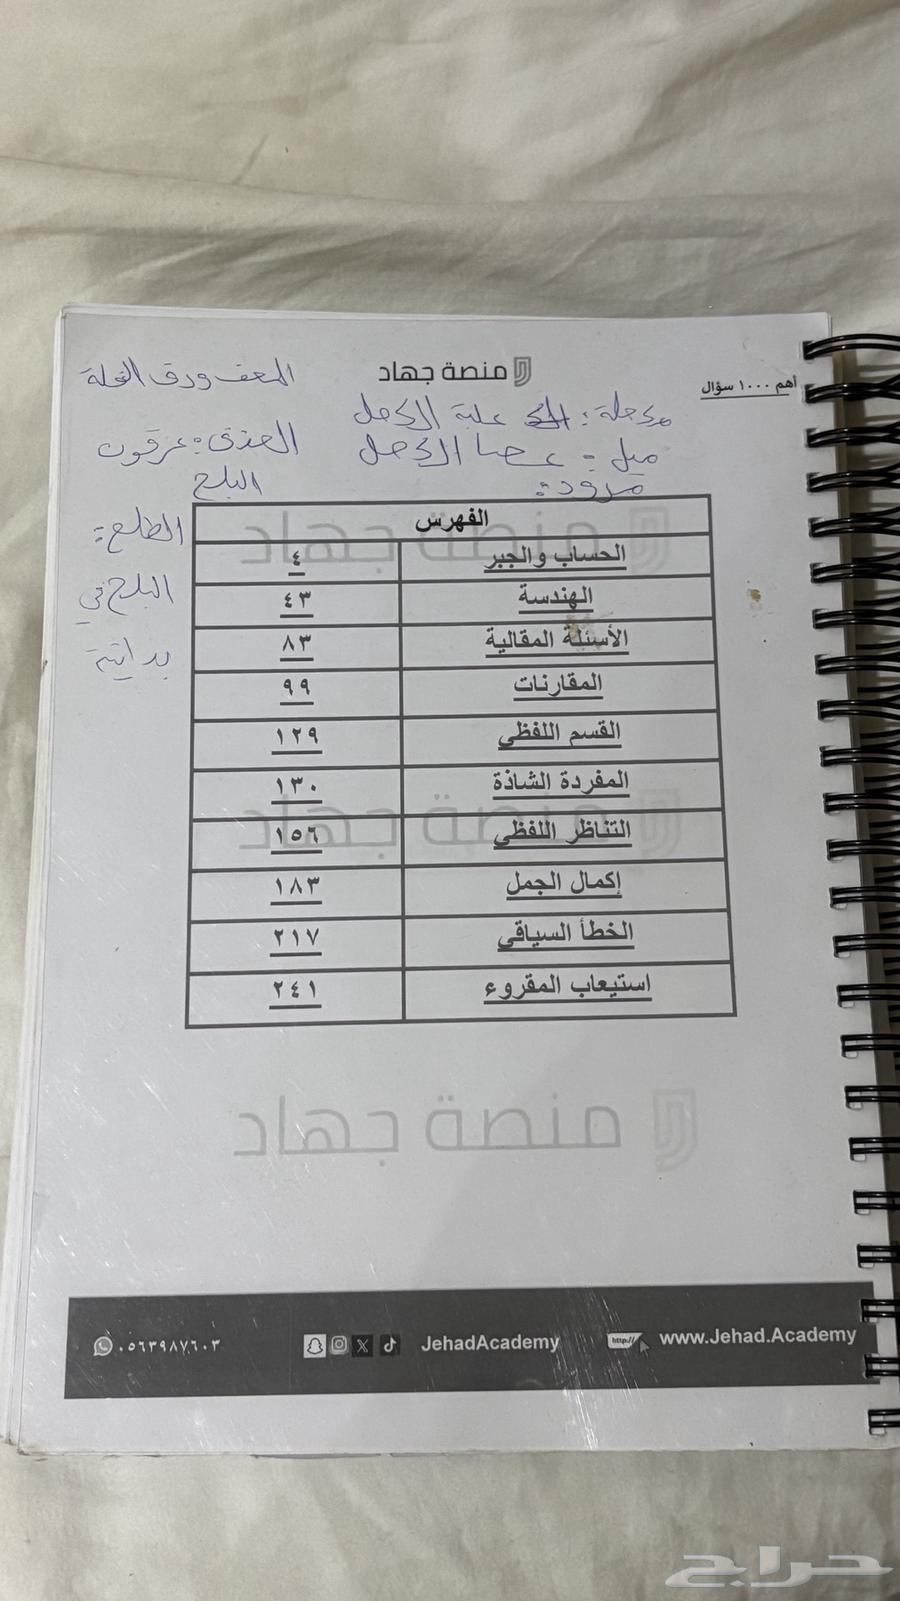 منصة جهاد
أهم ١٠٠٠ سؤال
السعف ورق النخلة
مكحلة: علبة الكحل
ميل: عصا الكحل
مرود:
العذق: عرقون
البلح
الطلع:
البلح في
بدايته
الفهرس
الحساب والجبر ٤
الهندسة ٤٣
الأسئلة المقالية ٨٣
المقارنات ٩٩
القسم اللفظي ١٢٩
المفردة الشاذة ١٣٠
التناظر اللفظي ١٥٦
إكمال الجمل ١٨٣
الخطأ السياقي ٢١٧
استيعاب المقروء ٢٤١
منصة جهاد
منصة جهاد
منصة جهاد
www.Jehad.Academy
http://
JehadAcademy
٠٥٦٣٩٨٧٦٠٣
حراج